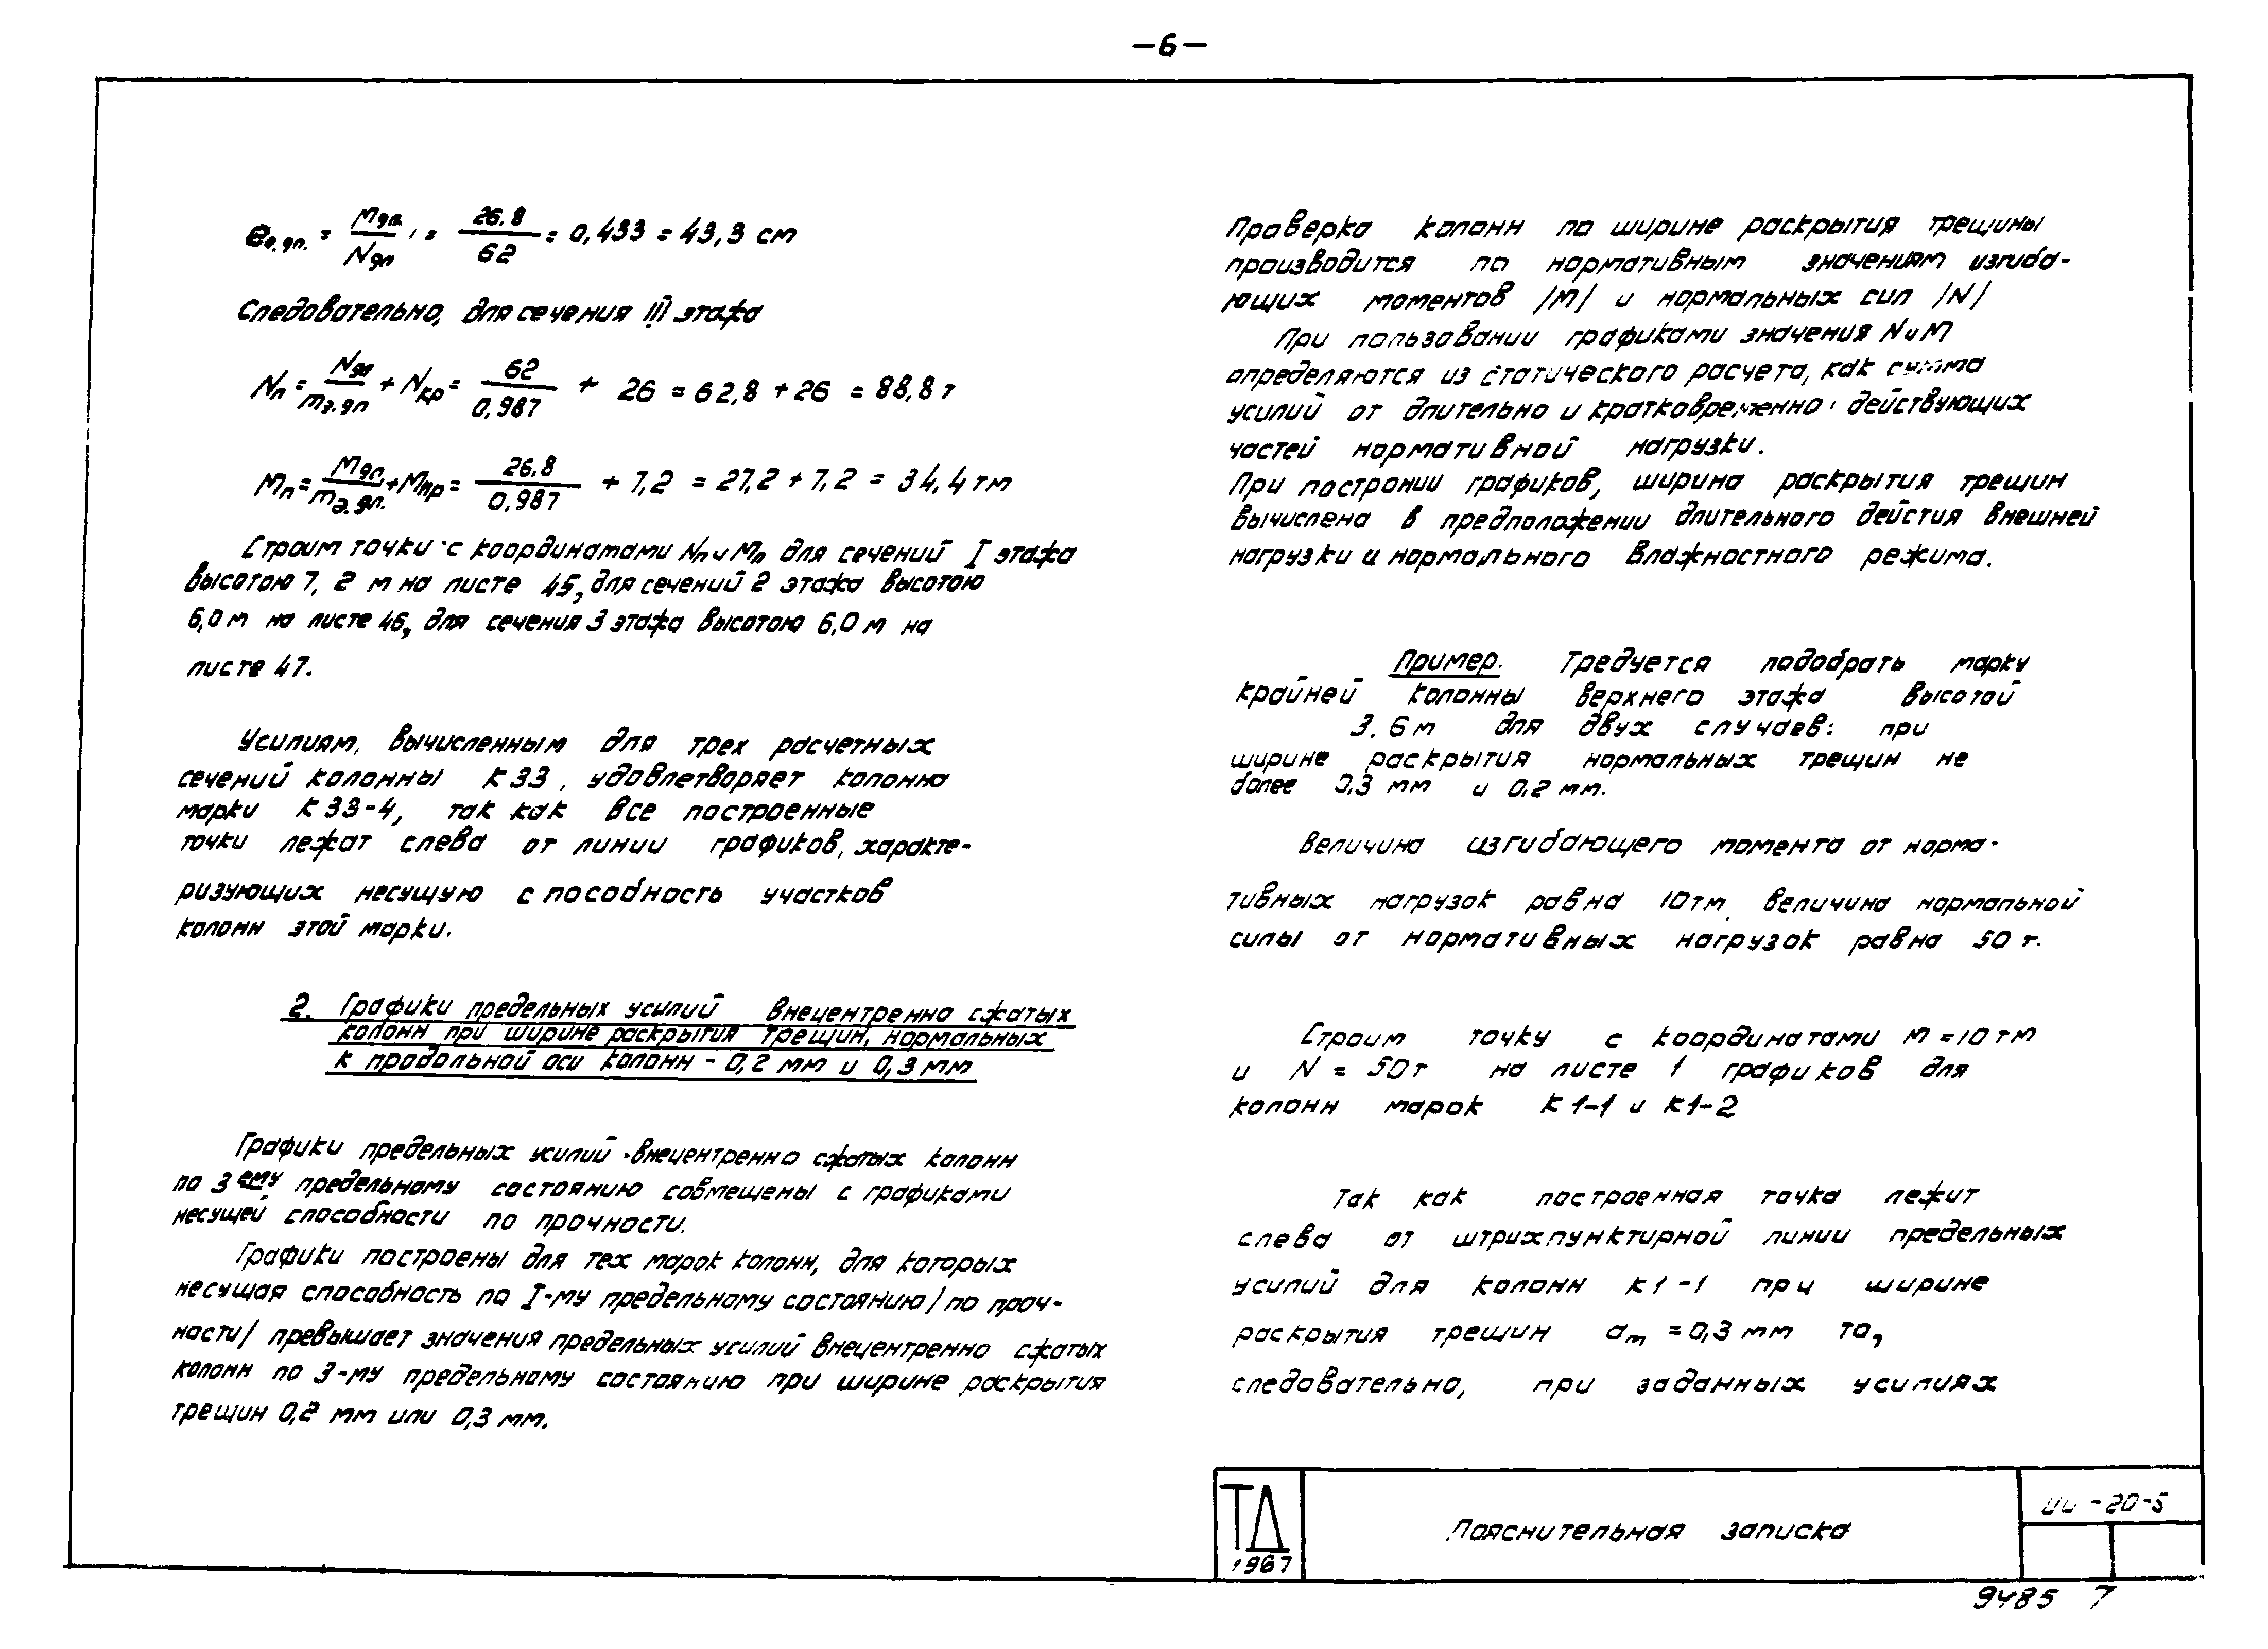 –6–
e₀.дл. = Mдл. / Nдл = 26.8 / 62 = 0,433 = 43,3 см
Следовательно, для сечения III этажа
Nп = Nдл / mэ.дл + Nкр = 62 / 0,987 + 26 = 62,8 + 26 = 88,8 т
Mп = Mдл. / mэ.дл. + Mкр = 26.8 / 0,987 + 7,2 = 27,2 + 7,2 = 34,4 тм
Строим точки с координатами Nп и Mп для сечений I этажа
высотою 7,2 м на листе 45, для сечений 2 этажа высотою
6,0 м на листе 46, для сечения 3 этажа высотою 6,0 м на
листе 47.
Усилиям, вычисленным для трех расчетных
сечений колонны К33, удовлетворяет колонна
марки К33-4, так как все построенные
точки лежат слева от линии графиков, характе-
ризующих несущую способность участков
колонн этой марки.
2. Графики предельных усилий внецентренно сжатых
колонн при ширине раскрытия трещин, нормальных
к продольной оси колонн - 0,2 мм и 0,3 мм
Графики предельных усилий внецентренно сжатых колонн
по 3ему предельному состоянию совмещены с графиками
несущей способности по прочности.
Графики построены для тех марок колонн, для которых
несущая способность по I-му предельному состоянию /по проч-
ности/ превышает значения предельных усилий внецентренно сжатых
колонн по 3-му предельному состоянию при ширине раскрытия
трещин 0,2 мм или 0,3 мм.
Проверка колонн по ширине раскрытия трещины
производится по нормативным значениям изгиба-
ющих моментов /М/ и нормальных сил /N/
При пользовании графиками значения N и М
определяются из статического расчета, как сумма
усилий от длительно и кратковременно действующих
частей нормативной нагрузки.
При постронии графиков, ширина раскрытия трещин
вычислена в предположении длительного дейстия внешней
нагрузки и нормального влажностного режима.
Пример. Требуется подобрать марку
крайней колонны верхнего этажа высотой
3.6 м для двух случаев: при
ширине раскрытия нормальных трещин не
более 0,3 мм и 0,2 мм.
Величина изгибающего момента от норма-
тивных нагрузок равна 10 тм, величина нормальной
силы от нормативных нагрузок равна 50 т.
Строим точку с координатами М = 10 тм
и N = 50 т на листе 1 графиков для
колонн марок К1-1 и К1-2
Так как построенная точка лежит
слева от штрихпунктирной линии предельных
усилий для колонн К1-1 при ширине
раскрытия трещин aт = 0,3 мм то,
следовательно, при заданных усилиях
ТД
1967
Пояснительная записка
ИИ-20-5
9485 7